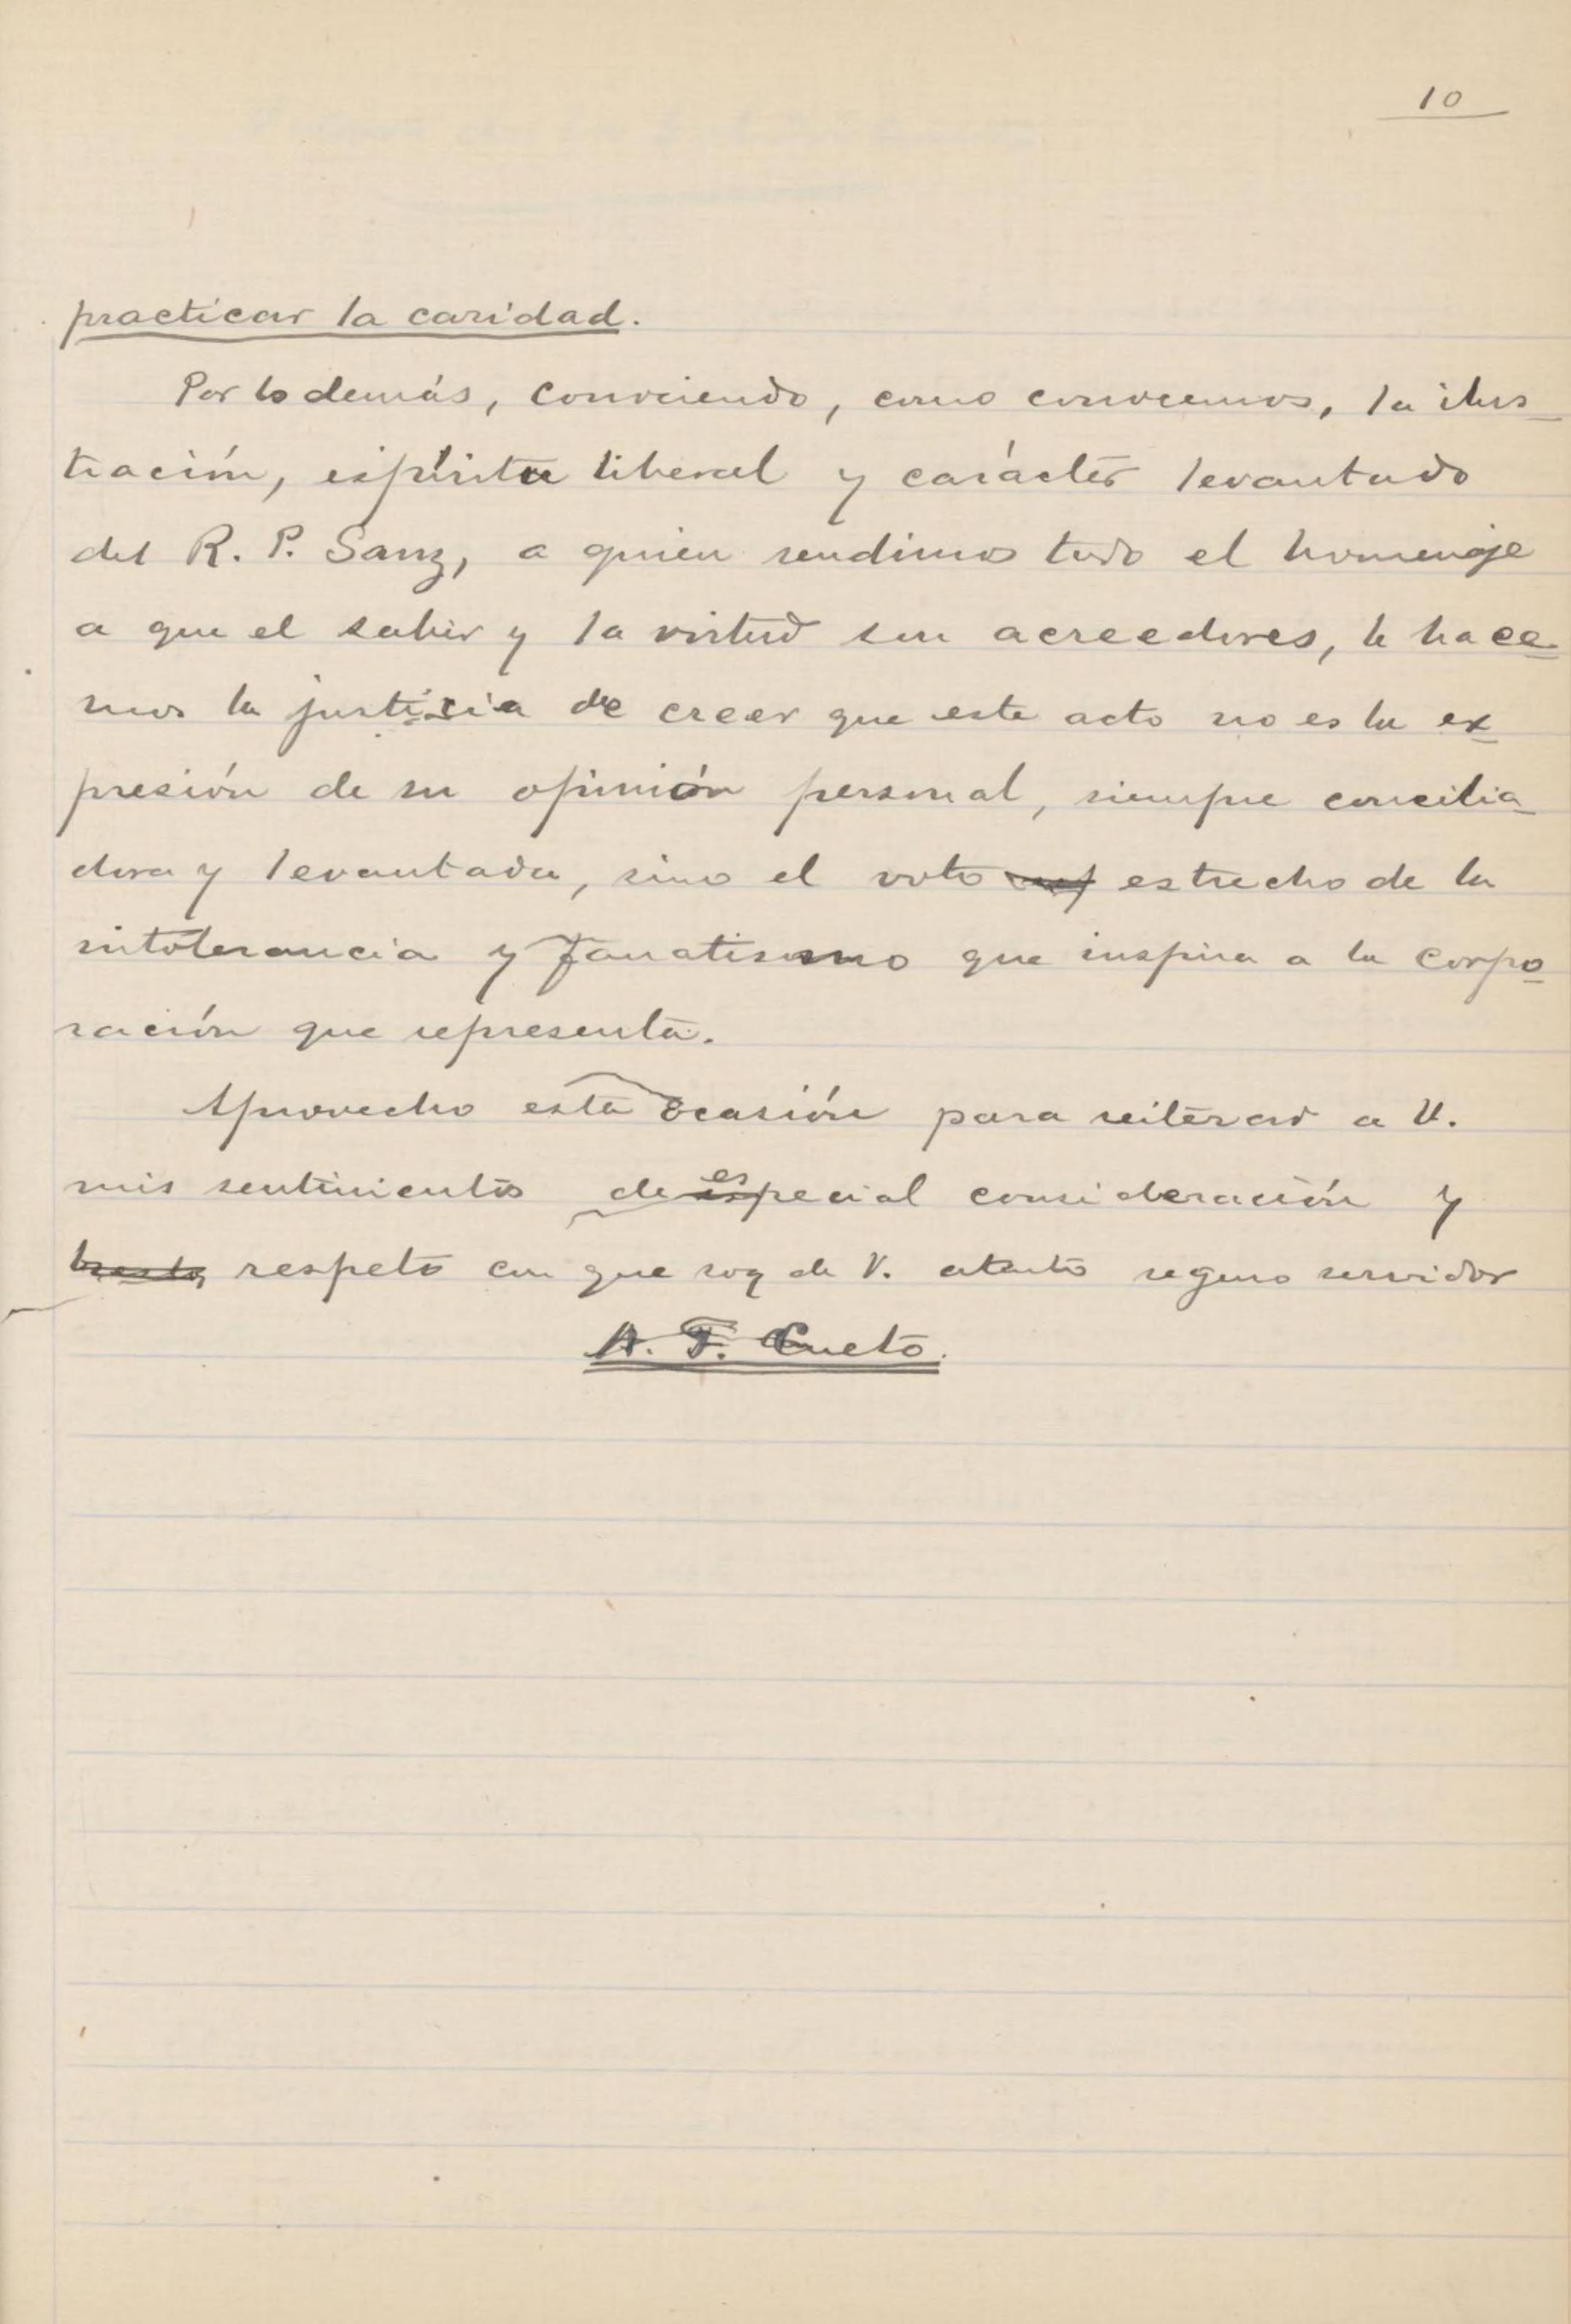 10
practicar la caridad.
Por lo demás, conociendo, como conocemos, la ilus-
tración, espíritu liberal y carácter levantado
del R. P. Sanz, a quien rendimos todo el homenaje
a que el saber y la virtud son acreedores, le hace-
mos la justicia de creer que este acto no es la ex-
presión de su opinión personal, siempre concilia-
dora y levantada, sino el voto estrecho de la
intolerancia y fanatismo que inspira a la corpo-
ración que representa.
Aprovecho esta ocasión para reiterar a U.
mis sentimientos de especial consideración y
respeto con que soy de V. atento seguro servidor
A. F. Cueto.